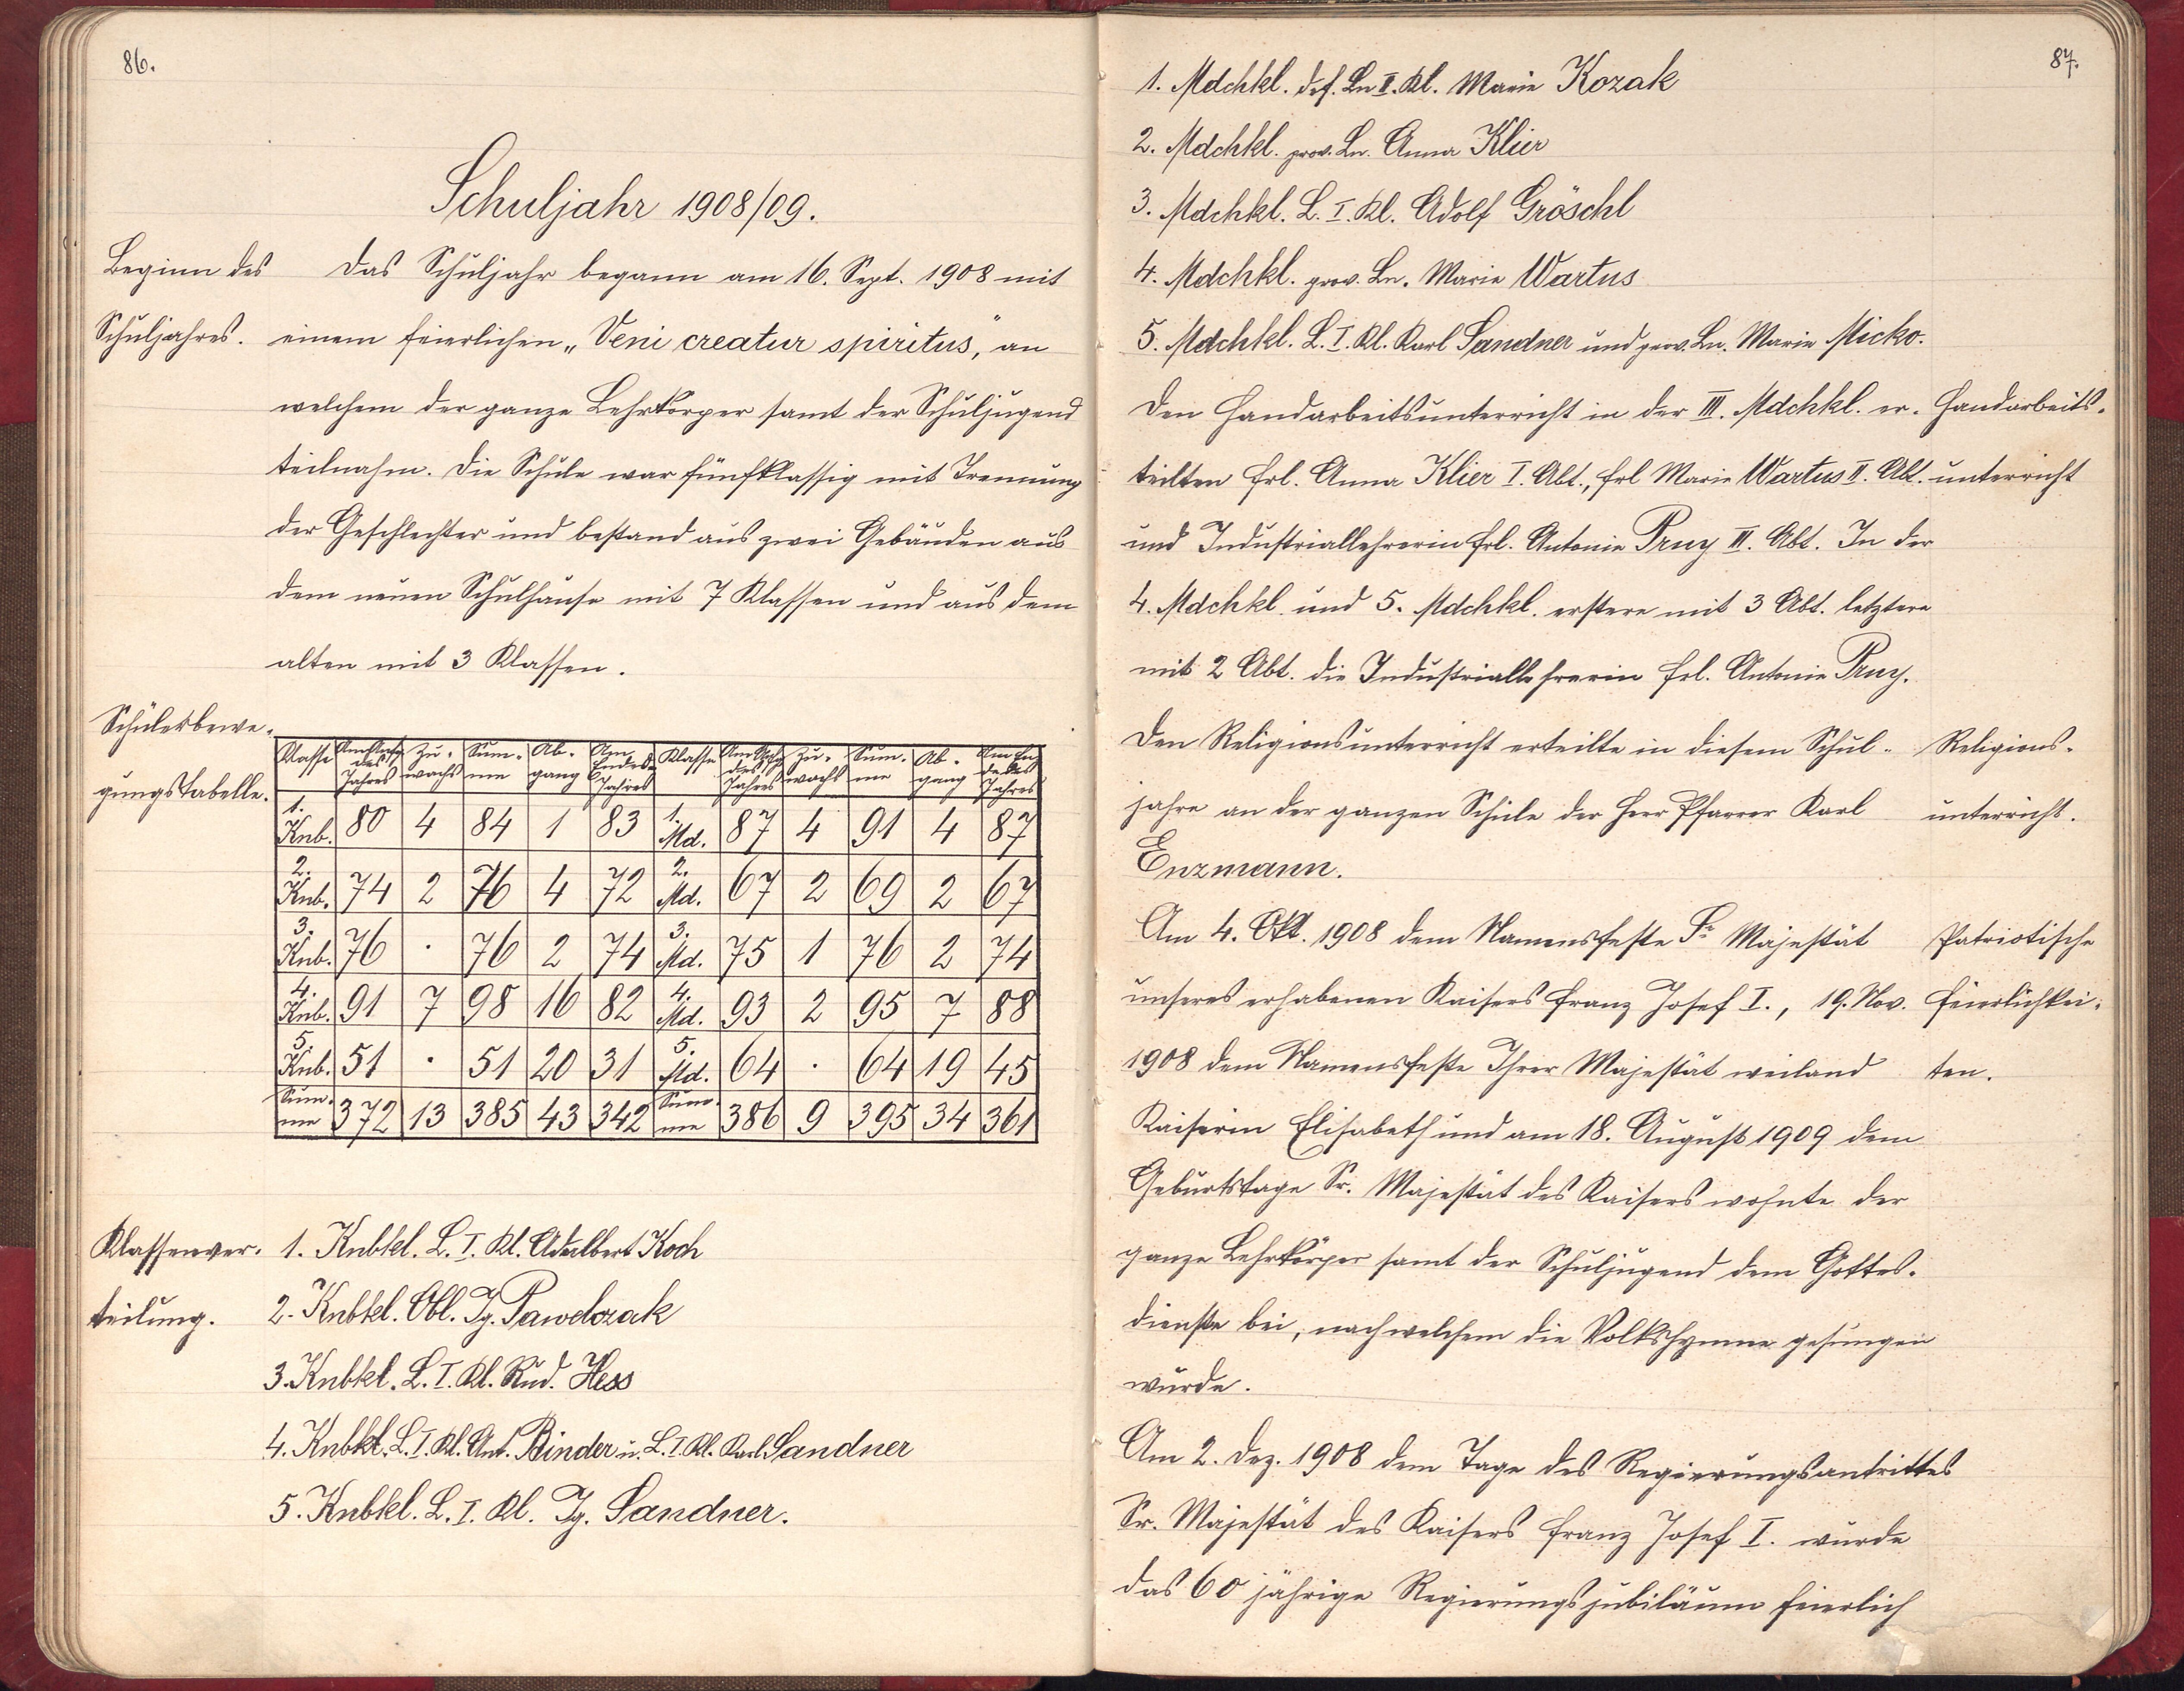 86.
Schuljahr 1908/09.
Beginn des
Schuljahres.
Das Schuljahr begann am 16. Sept. 1908 mit
einem feierlichen „Veni creatur spiritus“, an
welchem der ganze Lehrkörper samt der Schuljugend
teilnahm. Die Schule war fünfklassig mit Trennung
der Geschlechter und bestand aus zwei Gebäuden aus
dem neuen Schulhause mit 7 Klassen und aus dem
alten mit 3 Klassen.
Schülerbewe-
gungstabelle.
Klasse Am Anfg des Jahres Zu-wachs Sum-me Ab-gang Am Ende d. Jahres Klasse Am Anfg des Jahres Zu-wachs Sum-me Ab-gang Am En-de des Jahres
1. Knb. 80 4 84 1 83 1. Md. 87 4 91 4 87
2. Knb. 74 2 76 4 72 2. Md. 67 2 69 2 67
3. Knb. 76 . 76 2 74 3. Md. 75 1 76 2 74
4. Knb. 91 7 98 16 82 4. Md. 93 2 95 7 88
5. Knb. 51 . 51 20 31 5. Md. 64 . 64 19 45
Sum-me 372 13 385 43 342 Sum-me 386 9 395 34 361
Klassenver-
teilung.
1. Knbkl. L. I. Kl. Adalbert Koch
2. Knbkl. Obl. Ig. Pawelczak
3. Knbkl. L. I. Kl. Rud. Hess
4. Knbkl. L. I. Kl. Ant. Binder u. L. I. Kl. Karl Sandner
5. Knbkl. L. I. Kl. Ig. Sandner.
87.
1. Mdchkl. def. Ln II. Kl. Marie Kozak
2. Mdchkl. prov. Ln. Anna Klier
3. Mdchkl. L. I. Kl. Adolf Gröschl
4. Mdchkl. prov. Ln. Marie Wartus
5. Mdchkl. L. I. Kl. Karl Sandner und prov. Ln. Marie Micko.
Den Handarbeitsunterricht in der III. Mdchkl. er-
teilten Frl. Anna Klier I. Abt., Frl Marie Wartus II. Abt.
und Industriallehrerin Frl. Antonie Pruy III. Abt. In der
4. Mdchkl. und 5. Mdchkl. erstere mit 3 Abt. letztere
mit 2 Abt. die Industriallehrerin Frl. Antonie Pruy.
Handarbeits-
unterricht
Den Religionsunterricht erteilte in diesem Schul-
jahre an der ganzen Schule der Herr Pfarrer Karl
Enzmann.
Religions-
unterricht.
Am 4. Okt. 1908 dem Namensfeste Sr Majestät
unseres erhabenen Kaisers Franz Josef I., 19. Nov.
1908 dem Namensfeste Ihrer Majestät weiland
Kaiserin Elisabeth und am 18. August 1909 dem
Geburtstage Sr. Majestät des Kaisers wohnte der
ganze Lehrkörper samt der Schuljugend dem Gottes-
dienste bei, nach welchem die Volkshymne gesungen
wurde.
Patriotische
Feierlichkei-
ten.
Am 2. Dez. 1908 dem Tage des Regierungsantrittes
Sr. Majestät des Kaisers Franz Josef I. wurde
das 60 jährige Regierungsjubiläum feierlich